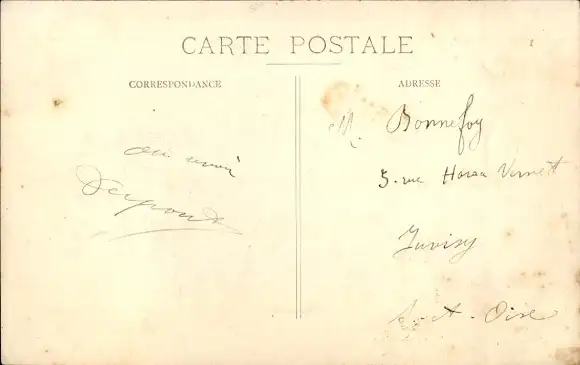 CARTE POSTALE
CORRESPONDANCE
ADRESSE
M. Bonnefoy
5. rue Horace Vernet
Juvisy
S.-et-Oise